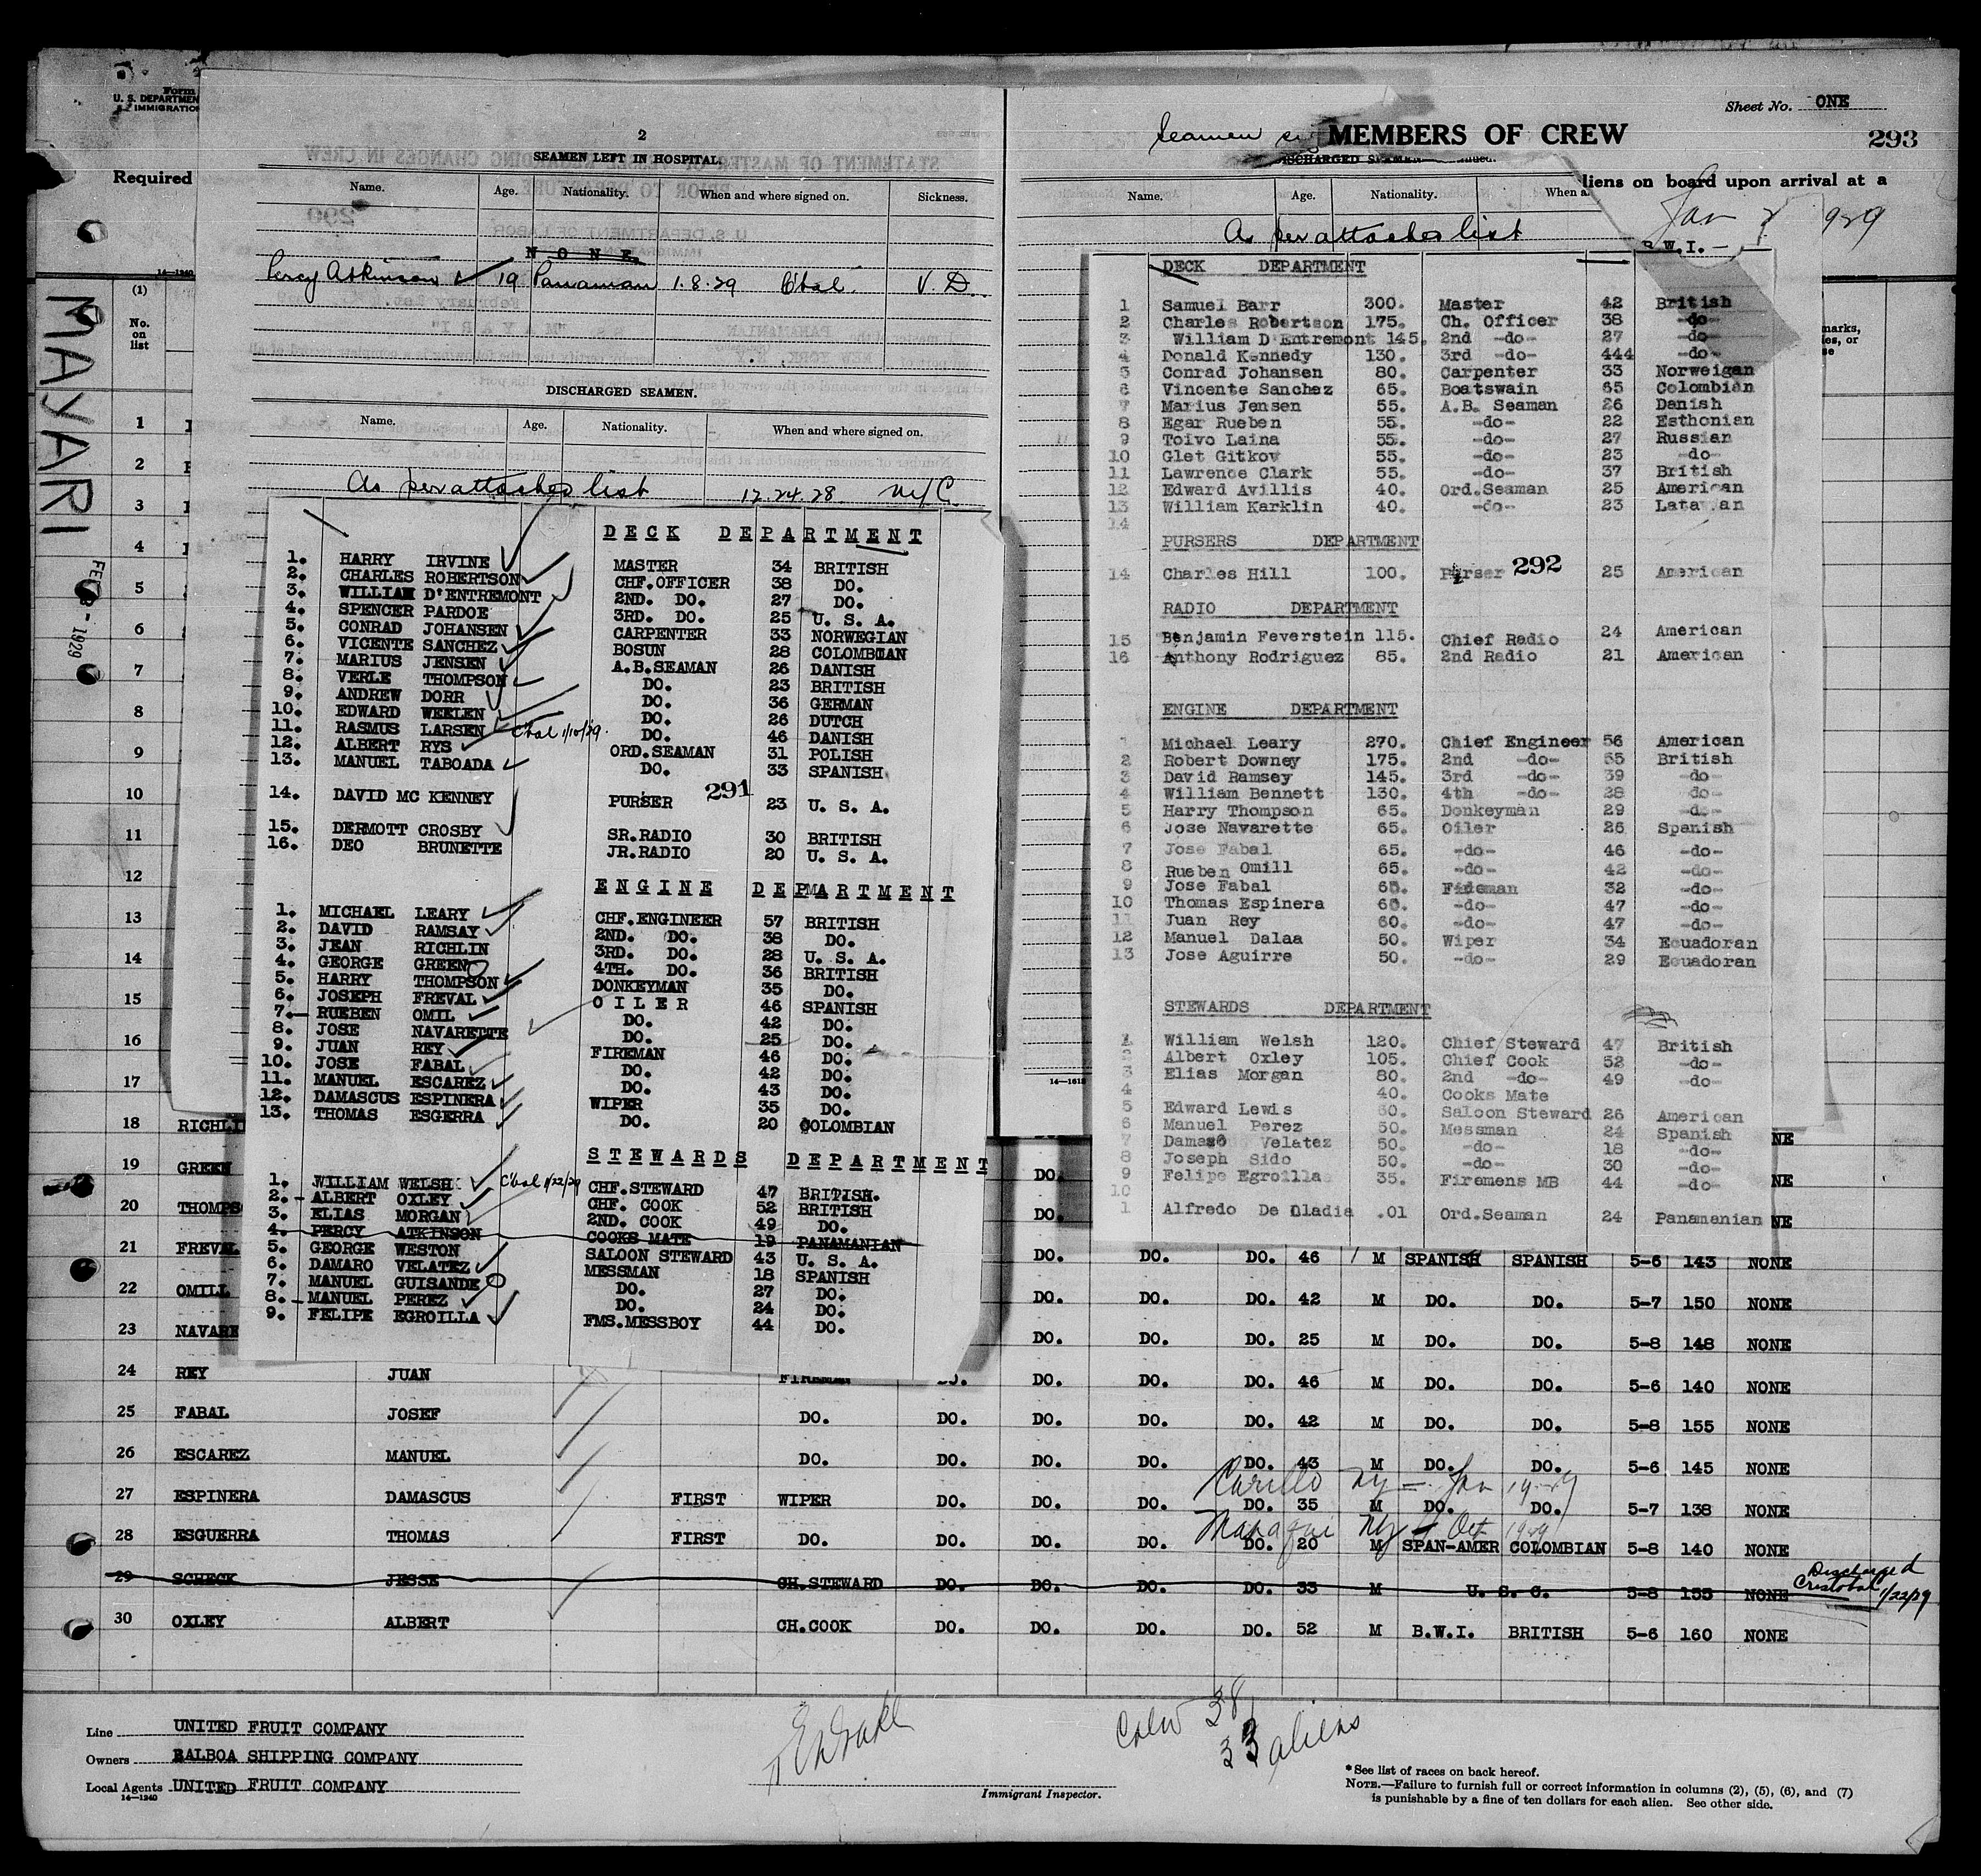 Form
U. S. DEPARTMEN
IMMIGRATIO
Required
14—1240
(1)
No.
on
list
MAYARI
FEB - 1929
1
2
3
4
5
6
7
8
9
10
11
12
13
14
15
16
17
2
SEAMEN LEFT IN HOSPITAL.
Name. Age. Nationality. When and where signed on. Sickness.
NONE
Percy Atkinson 19 Panaman 1.8.29 C'bal. V. D.
DISCHARGED SEAMEN.
Name. Age. Nationality. When and where signed on.
As per attached list 12.24.28. NYC
DECK DEPARTMENT
1. HARRY IRVINE MASTER 34 BRITISH
2. CHARLES ROBERTSON CHF.OFFICER 38 DO.
3. WILLIAM D'ENTREMONT 2ND. DO. 27 DO.
4. SPENCER PARDOE 3RD. DO. 25 U. S. A.
5. CONRAD JOHANSEN CARPENTER 33 NORWEGIAN
6. VICENTE SANCHEZ BOSUN 28 COLOMBIAN
7. MARIUS JENSEN A.B.SEAMAN 26 DANISH
8. VERLE THOMPSON DO. 23 BRITISH
9. ANDREW DORR DO. 36 GERMAN
10. EDWARD WEELEN DO. 26 DUTCH
11. RASMUS LARSEN C'bal 1/10/29. DO. 46 DANISH
12. ALBERT RYS ORD.SEAMAN 31 POLISH
13. MANUEL TABOADA DO. 33 SPANISH
291
14. DAVID MC KENNEY PURSER 23 U. S. A.
15. DERMOTT CROSBY SR.RADIO 30 BRITISH
16. DEO BRUNETTE JR.RADIO 20 U. S. A.
ENGINE DEPARTMENT
1. MICHAEL LEARY CHF.ENGINEER 57 BRITISH
2. DAVID RAMSAY 2ND. DO. 38 DO.
3. JEAN RICHLIN 3RD. DO. 28 U. S. A.
4. GEORGE GREEN 4TH. DO. 36 BRITISH
5. HARRY THOMPSON DONKEYMAN 35 DO.
6. JOSEPH FREVAL OILER 46 SPANISH
7. RUEBEN OMIL DO. 42 DO.
8. JOSE NAVARETTE DO. 25 DO.
9. JUAN REY FIREMAN 46 DO.
10. JOSE FABAL DO. 42 DO.
11. MANUEL ESCAREZ DO. 43 DO.
12. DAMASCUS ESPINERA WIPER 35 DO.
13. THOMAS ESGERRA DO. 20 COLOMBIAN
STEWARDS DEPARTMENT
1. WILLIAM WELSH C'bal 1/22/29 CHF.STEWARD 47 BRITISH.
2. ALBERT OXLEY CHF. COOK 52 BRITISH
3. ELIAS MORGAN 2ND. COOK 49 DO.
4. PERCY ATKINSON COOKS MATE 19 PANAMANIAN
5. GEORGE WESTON SALOON STEWARD 43 U. S. A.
6. DAMARO VELATEZ MESSMAN 18 SPANISH
7. MANUEL GUISANDE DO. 27 DO.
8. MANUEL PEREZ DO. 24 DO.
9. FELIPE EGROILLA FMS.MESSBOY 44 DO.
Sheet No. ONE
Seamen MEMBERS OF CREW 293
DISCHARGED SEAMEN
liens on board upon arrival at a
Name. Age. Nationality. When a
Jan 1929
As per attached list
B.W.I.—
marks,
DECK DEPARTMENT
1 Samuel Barr 300. Master 42 British
2 Charles Robertson 175. Ch. Officer 38 -do-
3 William D Entremont 145. 2nd -do- 27 -do-
4 Donald Kennedy 130. 3rd -do- 444 -do-
5 Conrad Johansen 80. Carpenter 33 Norweigan
6 Vincente Sanchez 65. Boatswain 65 Colombian
7 Marius Jensen 55. A.B. Seaman 26 Danish
8 Egar Rueben 55. -do- 22 Esthonian
9 Toivo Laina 55. -do- 27 Russian
10 Glet Gitkov 55. -do- 23 -do-
11 Lawrence Clark 55. -do- 37 British
12 Edward Avillis 40. Ord.Seaman 25 American
13 William Karklin 40. -do- 23 Latavian
14
PURSERS DEPARTMENT
14 Charles Hill 100. Purser 292 25 American
RADIO DEPARTMENT
15 Benjamin Feverstein 115. Chief Radio 24 American
16 Anthony Rodriguez 85. 2nd Radio 21 American
ENGINE DEPARTMENT
1 Michael Leary 270. Chief Engineer 56 American
2 Robert Downey 175. 2nd -do- 55 British
3 David Ramsey 145. 3rd -do- 39 -do-
4 William Bennett 130. 4th -do- 28 -do-
5 Harry Thompson 65. Donkeyman 29 -do-
6 Jose Navarette 65. Oiler 26 Spanish
7 Jose Fabal 65. -do- 46 -do-
8 Rueben Omill 65. -do- 42 -do-
9 Jose Fabal 65. Fireman 32 -do-
10 Thomas Espinera 60. -do- 47 -do-
11 Juan Rey 60. -do- 47 -do-
12 Manuel Dalaa 50. Wiper 34 Ecuadoran
13 Jose Aguirre 50. -do- 29 Ecuadoran
STEWARDS DEPARTMENT
1 William Welsh 120. Chief Steward 47 British
2 Albert Oxley 105. Chief Cook 52 -do-
3 Elias Morgan 80. 2nd -do- 49 -do-
4 40. Cooks Mate
5 Edward Lewis 60. Saloon Steward 26 American
6 Manuel Perez 50. Messman 24 Spanish
7 Damaso Velatez 50. -do- 18 -do-
8 Joseph Sido 50. -do- 30 -do-
9 Felipe Egroilla 35. Firemens MB 44 -do-
10
1 Alfredo De Oladia .01 Ord.Seaman 24 Panamanian
14—1613
18 RICHLI NE
19 GREEN DO. NE
20 THOMPS DO. NE
21 FREVAL DO. DO. DO. 46 M SPANISH SPANISH 5-6 143 NONE
22 OMILL DO. DO. DO. 42 M DO. DO. 5-7 150 NONE
23 NAVARE DO. DO. DO. 25 M DO. DO. 5-8 148 NONE
24 REY JUAN FIREMAN DO. DO. DO. DO. 46 M DO. DO. 5-6 140 NONE
25 FABAL JOSEF DO. DO. DO. DO. DO. 42 M DO. DO. 5-8 155 NONE
26 ESCAREZ MANUEL DO. DO. DO. DO. DO. 43 M DO. DO. 5-6 145 NONE
Carillo NY — Jan 1929
27 ESPINERA DAMASCUS FIRST WIPER DO. DO. DO. DO. 35 M DO. DO. 5-7 138 NONE
NY Oct 1929
28 ESGUERRA THOMAS FIRST DO. DO. DO. DO. DO. 20 M SPAN-AMER COLOMBIAN 5-8 140 NONE
29 SCHECK JESSE CH.STEWARD DO. DO. DO. DO. 33 M U. S. C. 5-8 155 NONE Discharged Cristobal 1/22/29
30 OXLEY ALBERT CH.COOK DO. DO. DO. DO. 52 M B.W.I. BRITISH 5-6 160 NONE
Line UNITED FRUIT COMPANY
Owners BALBOA SHIPPING COMPANY
Local Agents UNITED FRUIT COMPANY
14—1240
Immigrant Inspector.
Crew 38
33 aliens
* See list of races on back hereof.
NOTE.—Failure to furnish full or correct information in columns (2), (5), (6), and (7)
is punishable by a fine of ten dollars for each alien. See other side.